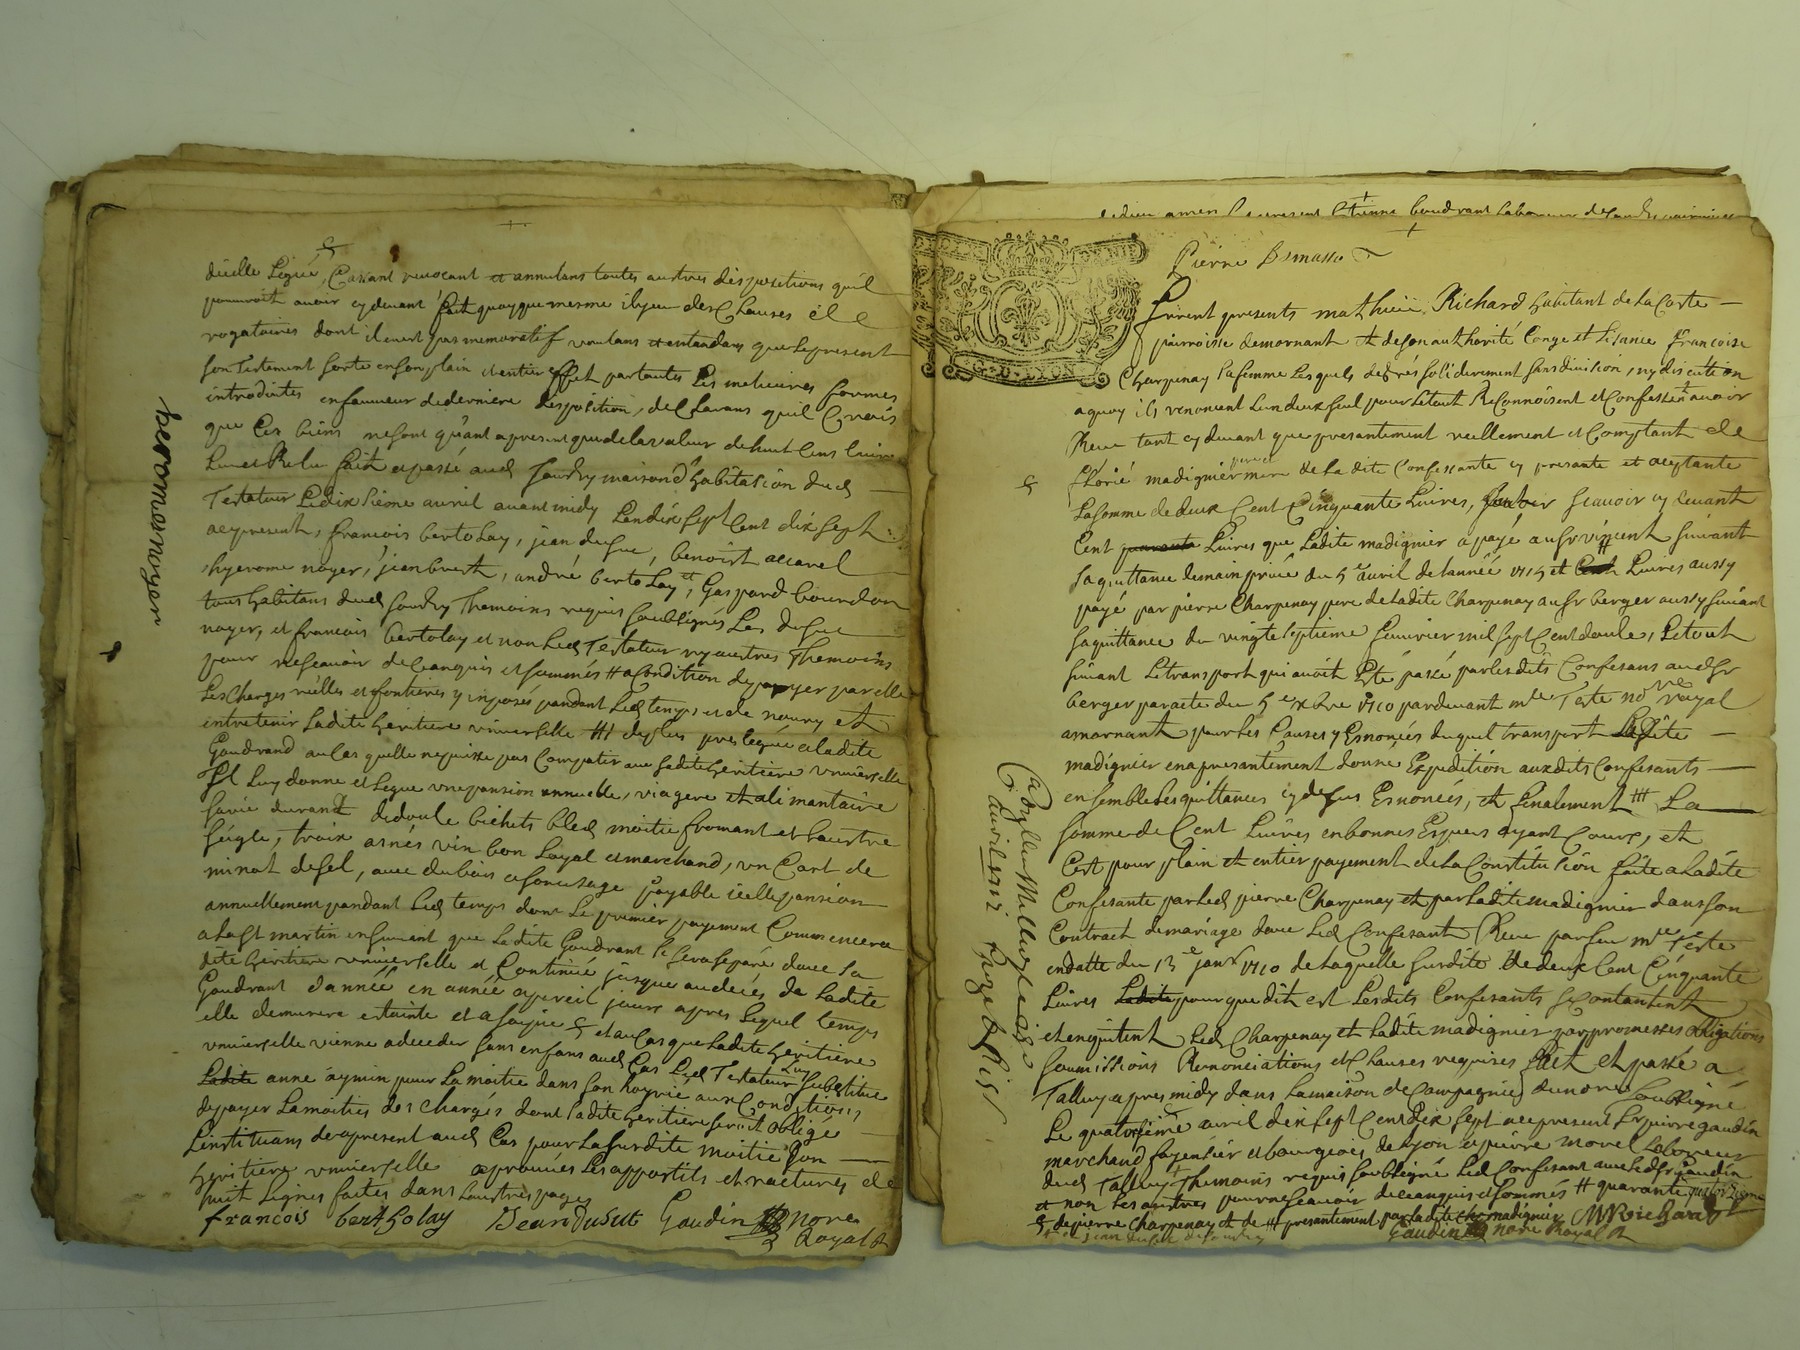 d'icelle légué, Cassant revocant et annulans toutes austres dispositions qu'il
pourroit avoir cy devant fait quoyque mesme il y eu des Clauses de
rogatoires dont il n'est pas memoratif voulans et entandans que le present
son Testement sorte en son plain et entier effet par toutes les melieures formes
introduites en faveur de derniere disposition, declarans qu'il Croit
que Ces biens ne sont quant apresent que de la valeur de huit Cens livres
Lu et Relu fait et passé aud Soudry maison d'habitation dud
Testateur Le dix sieme avril avant midy Lan dix sept Cent dix sept
acy present, francois bertolay, jean dusuc, benoist accarel
hyerome noyer, jean
andré bertolay, et Gaspard bourdon
tous habitans dud Soudry Themoins requis soubsignés Les dusuc
noyer, et francois bertolay et non led Testateur ny austres Themoins
pour ne scavoir de Ceanquis et sommés # a Condition de payer par elle
Les Charges reélles et fontieres y inposés pandant led temps et de nourry et
entretenir Ladite heritiere universelle ## de plus preleguée a ladite
Gaudrand au Cas quelle ne puisse pas Compatir avec sadite heritiere universelle
Il Luy donne et Legue une pansion annuelle, viagere et alimantaire
sa vie durant de doule bichets bled moitie fromant et l'austre
seigle, trois asnés vin bon Loyal et marchand, un Cart de
minot de sel, avec du bois
payable icelle pansion
annuellement pandant led temps dont le premier payement Commencera
a la st martin ensuivant que Ladite Gaudrant se sera separé davec sa
dite heritiere universelle et Continué jusque au decés de Ladite
Gaudrant d'année en année a pareil jours apres Lequel temps
elle demurera estainte et
et au Cas que Ladite heritiere
universelle vienne a deceder sans enfans aud Cas Led Testateur Luy substitue
Ladite anne aymin pour La moitie dans son hoyrie aux Conditions
de payer La moities des charges dont Ladite heritiere seroit obligé
L'instituans de apresent aud Cas pour La susdite moitie son
heritiere universelle aprouvées Les apportils et ractures de
huit Lignes faites dans Laustres pages
francois bertholay Jean Dusuc Gaudin nore
Royal
hieromenoyer
Pierre Dsmasse
Furent presents mathieu Richard habitant de la Coste
parroisse de mornant et de son authorité Conge et Lisance francoise
Charpenay sa femme Lesquels de grés soliderement sans division, ny discution
a quoy ils renoncent Lun deux seul pour Le tout Reconnoissent et Confessent avoir
Receu tant cy devant que presantement reellement et Comptant de
florié madignier mere de La dite Confessante cy presante et aceptante
La somme de deux Cent Cinquante Livres, scavoir cy devant
Cent quarante Livres que Ladite madignier a payé au sr vincent suivant
sa quittance de main privé du 5e avril de lannée 1715 et Cent Livres aussy
payé par pierre Charpenay pere de Ladite Charpenay au sr berger aussy suivant
sa quittance du vingt septieme fevrier mil sept Cent doule, Le tout
suivant Le transport qui avoit Eté passé par Lesdits Confessans audsr
berger par acte du 5e xbre 1710 pardevant me Terte nore royal
a mornant pour Les Causes y Enoncées duquel transport Ladite
madignier en a presantement donné Expedition auxdits Confessants
ensemble Les quittances cy dessus Enoncées, et finalement ### La
somme de Cent Livres en bonnes Especes ayant Cours, et
Cest pour plain et entier payement de La Constitution faite a Ladite
Confessante par Led pierre Charpenay et par Ladite madignier dans son
Contract de mariage avec Led Confessant Receu par feu me Terte
en datte du 13e janr 1710 de Laquelle susdite de deux Cent Cinquante
Livres Ladite pour que dit est Lesdits Confessants se contantent
et en quittent Led Charpenay et Ladite madignier par promesses obligations
soumissions Renonciations et Clauses requises fait et passé a
Talluy apres midy dans La maison de Campagnie du nore soubsigné
Le quatorsieme avril dix sept Cent Dix sept acy present sr pierre gaudin
marchand fayensier et bourgeois de Lyon et pierre morel Laboreur
dud Talluy Themoins requis soubsigné Led Confessant avec led sr gaudin
et non Les austres pour ne scavoir de Ceanquis et sommés # quarante
§ de pierre Charpenay et de ### presantement par Ladite madignier MRichard
Gaudin nore Royal
G D LYON
avril 1717